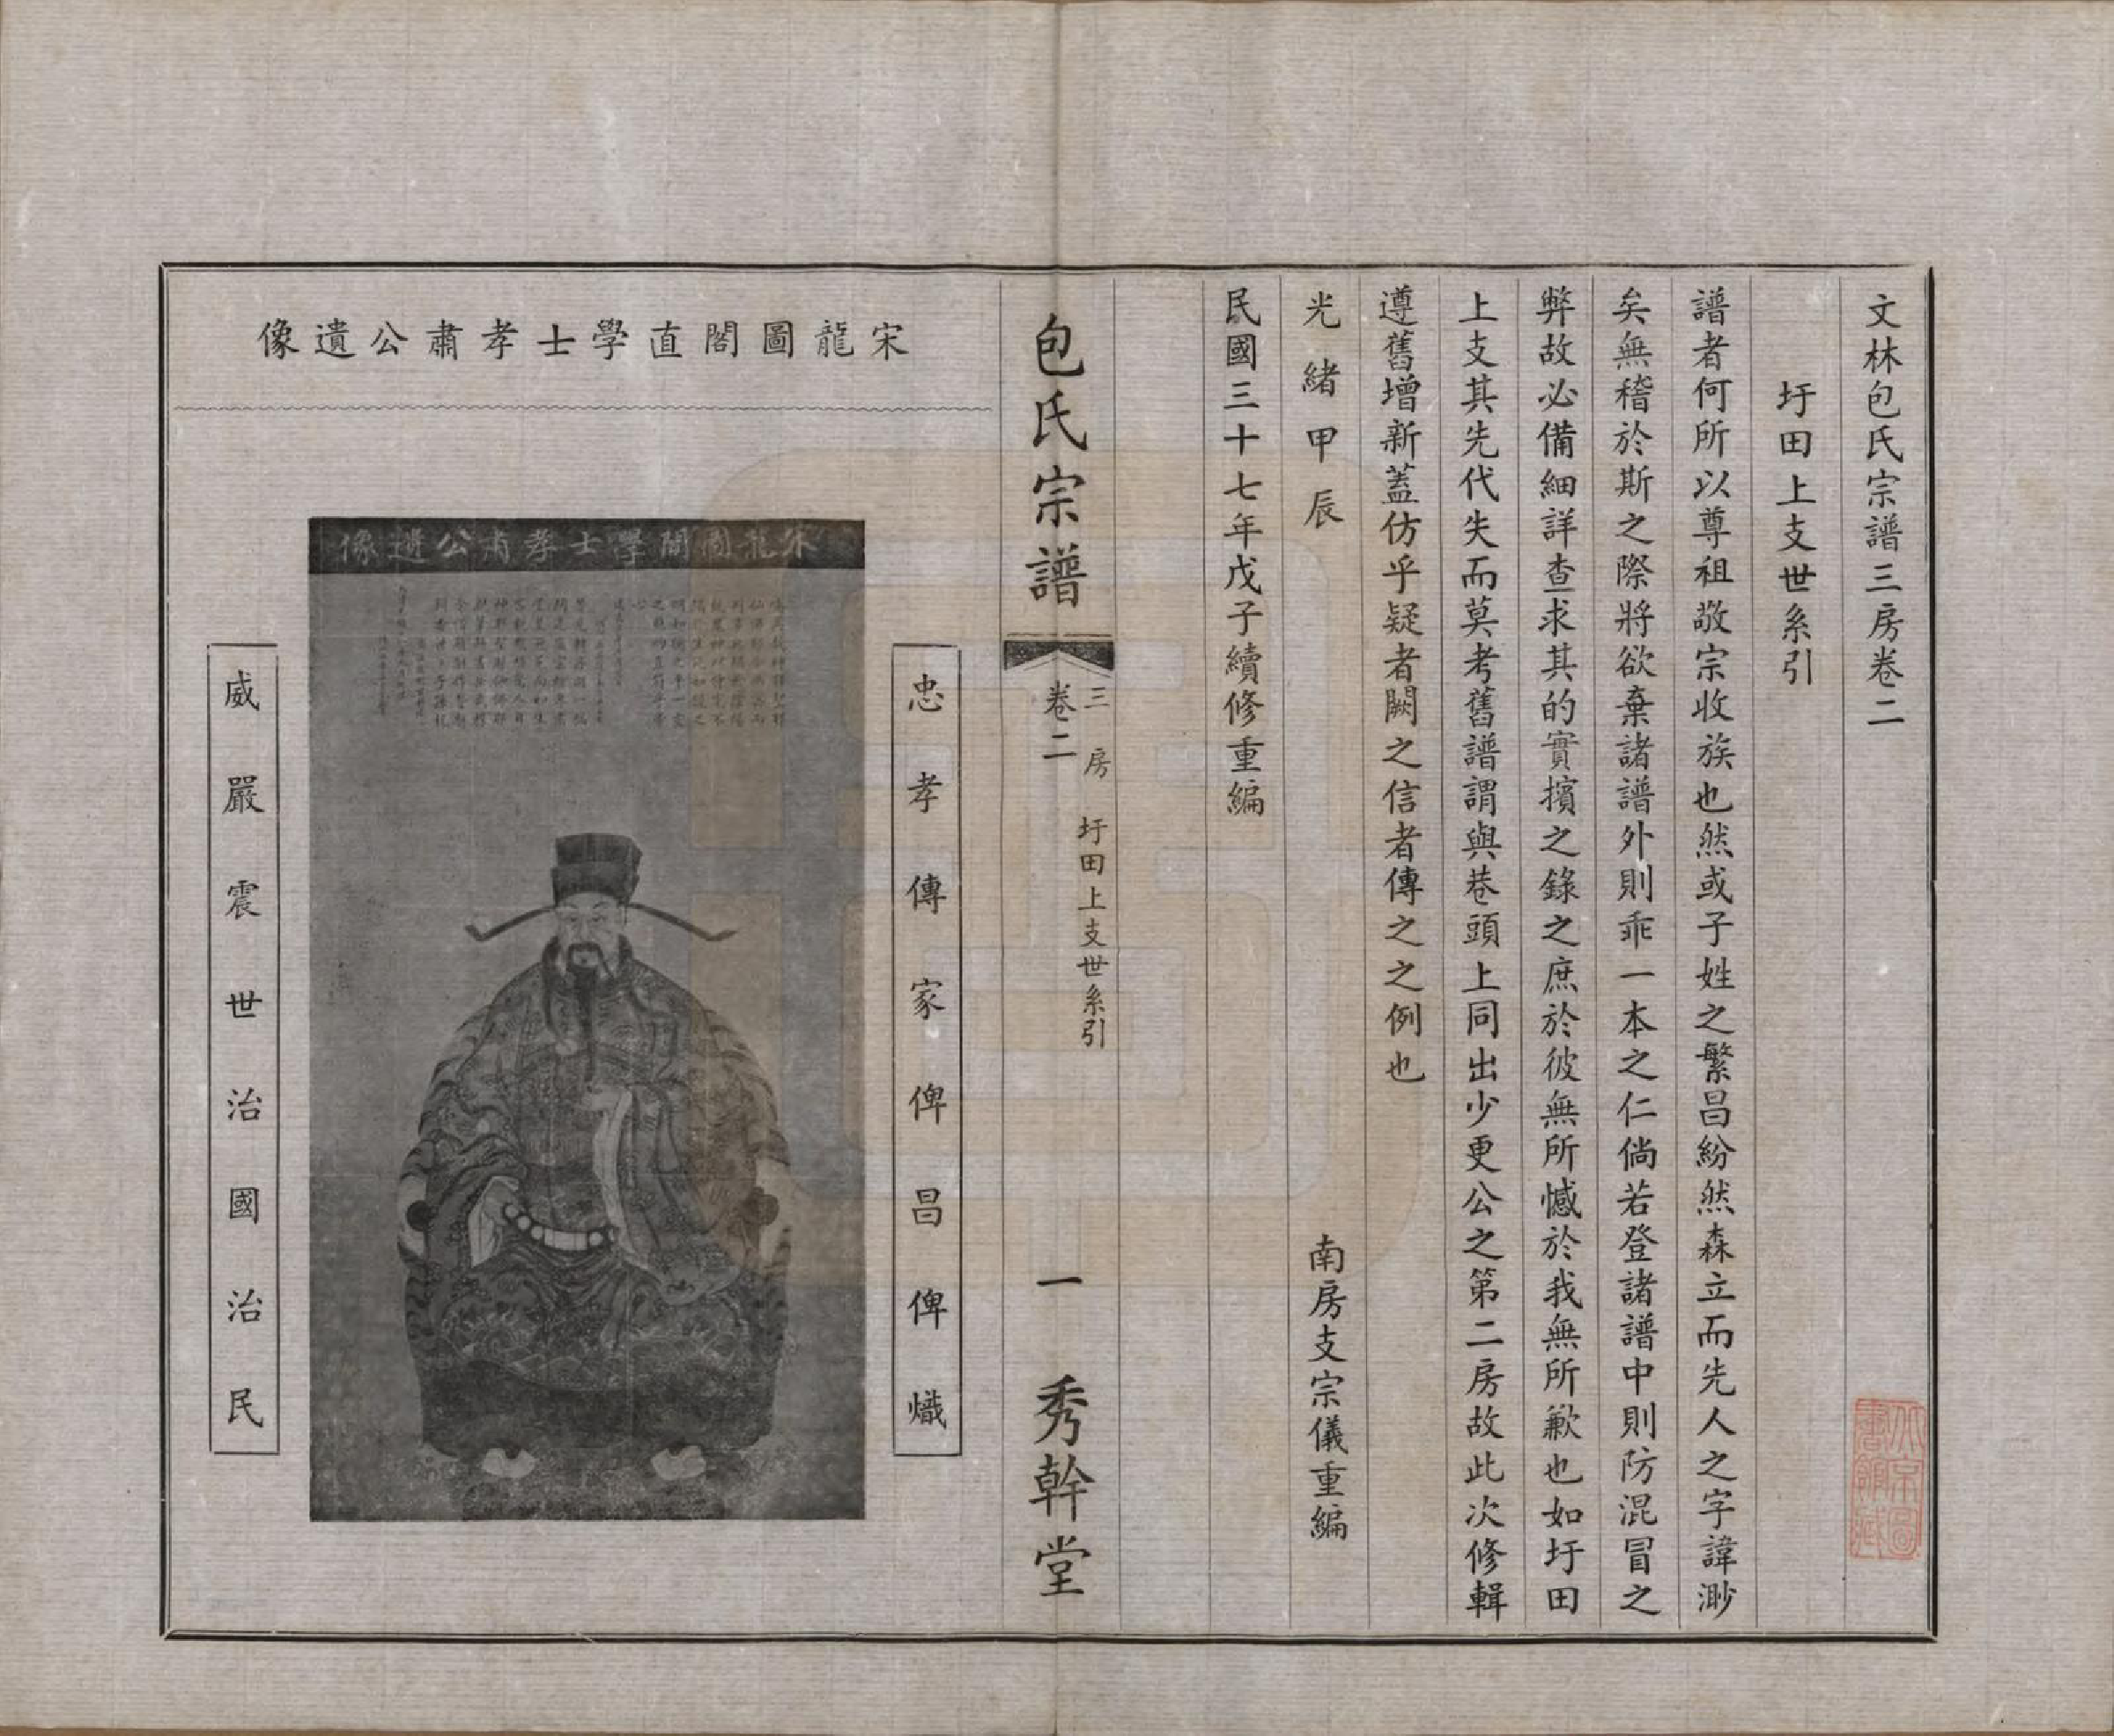 文林包氏宗譜三房卷二
圩田上支世系引
譜者何所以尊祖敬宗收族也然或子姓之繁昌紛然森立而先人之字諱渺
矣無稽於斯之際將欲棄諸譜外則乖一本之仁倘若登諸譜中則防混冒之
弊故必備細詳查求其的實擯之錄之庶於彼無所憾於我無所歉也如圩田
上支其先代失而莫考舊譜謂與巷頭上同出少更公之第二房故此次修輯
遵舊增新蓋仿乎疑者闕之信者傳之之例也
光緒甲辰 南房支宗儀重編
民國三十七年戊子續修重編
包氏宗譜 卷二 一 秀幹堂
三房 圩田上支世系引
宋龍圖閣直學士孝肅公遺像
忠孝傳家俾昌俾熾
宋龍圖閣學士孝肅公遺像
威嚴震世治國治民
北京圖
書館藏